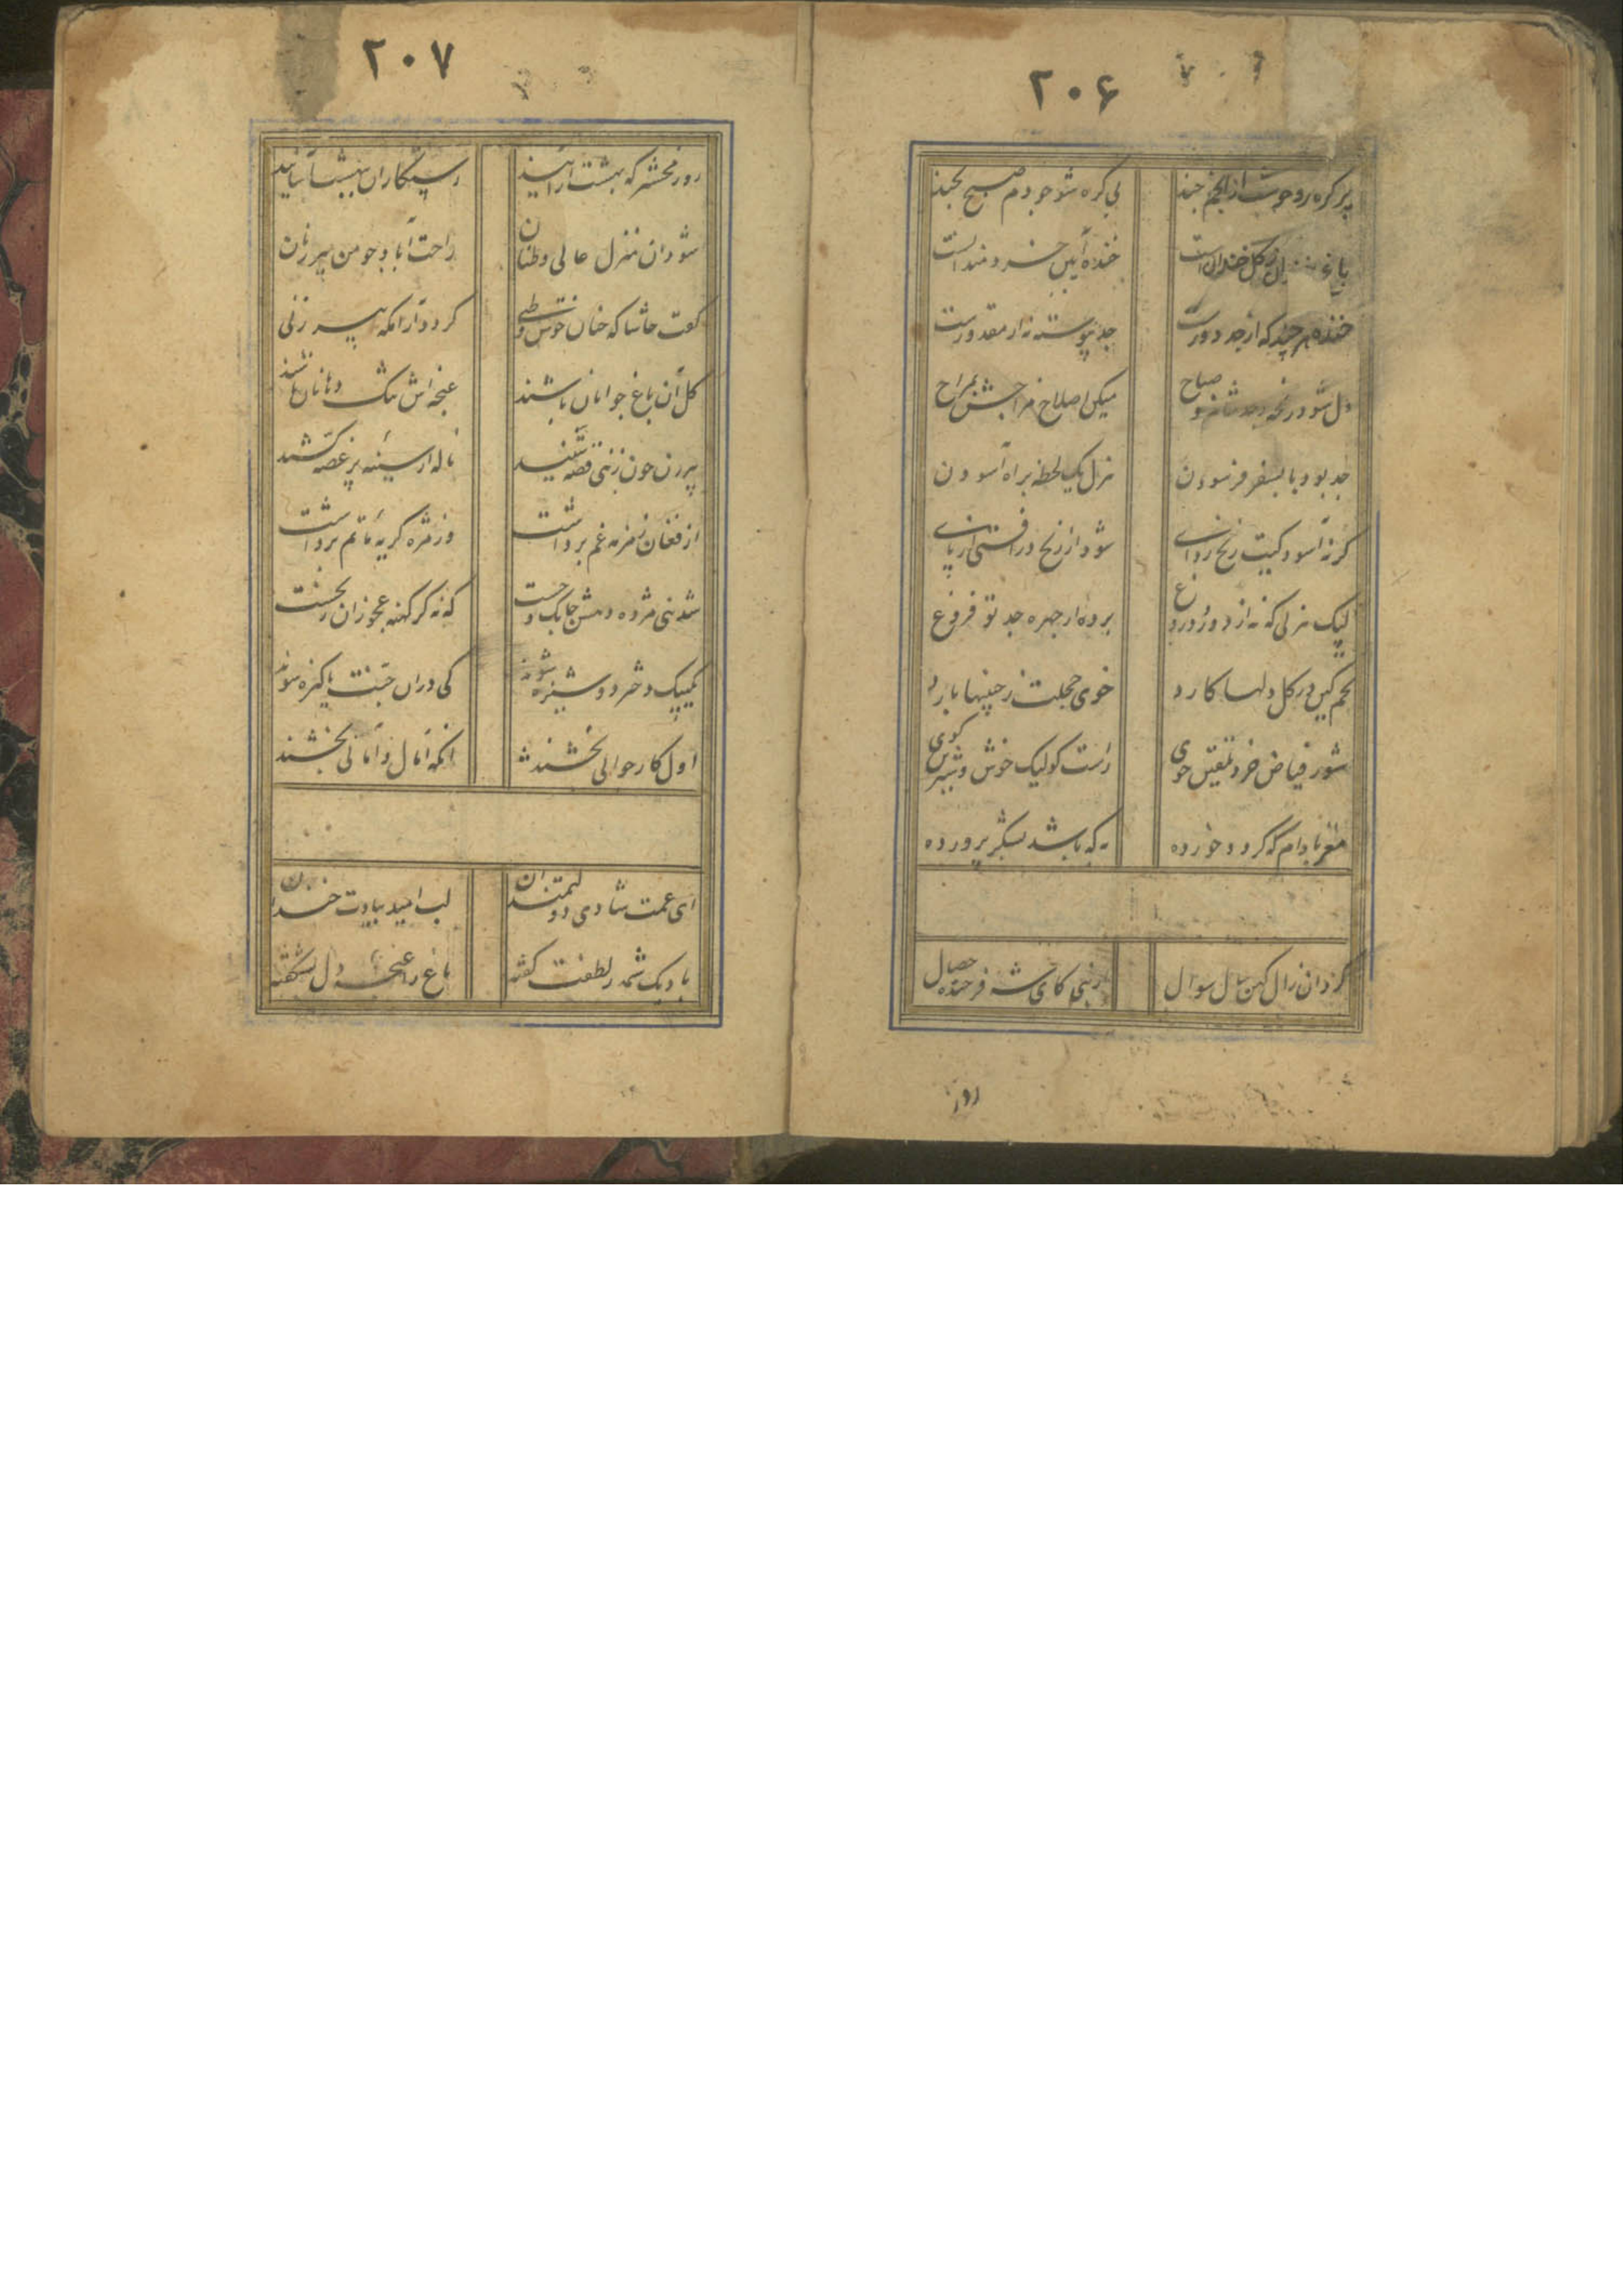 ۲۰۶
پر گره رو چو شب از انجم چند
بی گره شو چو دم صبح بخند
باغ خندان ز گل خندان است
خنده آیین خردمندانست
خنده هر چند که از جد دورست
جد پیوسته نه از مقدورست
دل شود رنجه ز جد شام و صباح
میکن اصلاح مزاجش بمزاح
جد بود پا بسفر فرسودن
هزل یک لحظه براه آسودن
گر نه آسودگیت رنج زدای
شود از رنج درافتی از پای
لیک هزلی که نه از دود دروغ
برد از چهره جد تو فروغ
تخم کین در گل دلها کارد
خوی خجلت ز جبینها بارد
شو ز فیاض خرد تلقین جوی
راست گو لیک خوش و شیرین گوی
مغز بادام که گردد خورده
به که باشد بشکر پرورده
کرد آن زال کهن سال سوال
از نبی کای شه فرخنده خصال
روز
۲۰۷
روز محشر که بهشت آرایند
رستگاران ببهشت آسایند
شود آن منزل عالی وطنان
راحت آباد چو من پیر زنان
گفت حاشا که چنان خوش وطنی
گردد آرامگه پیر زنی
گل آن باغ جوانان باشند
غنچه اش تنگ دهانان باشند
پیر زن چون ز نبی قصه شنید
ناله از سینه پر غصه کشید
از فغان زمزمه غم برداشت
وز مژه گریه ماتم برداشت
شد نبی مژده دهش چابک و چست
که نه گر کهنه عجوزان ز نخست
یک بیک دختر دوشیزه شوند
کی در آن جنت پاکیزه شوند
اول کار جوانی بخشند
آنگه آمال و امانی بخشند
ای غمت شادی دولتمندان
لب امید بیادت خندان
با دیک شمه ز لطفت گفته
باغ را غنچه دل بشکفته